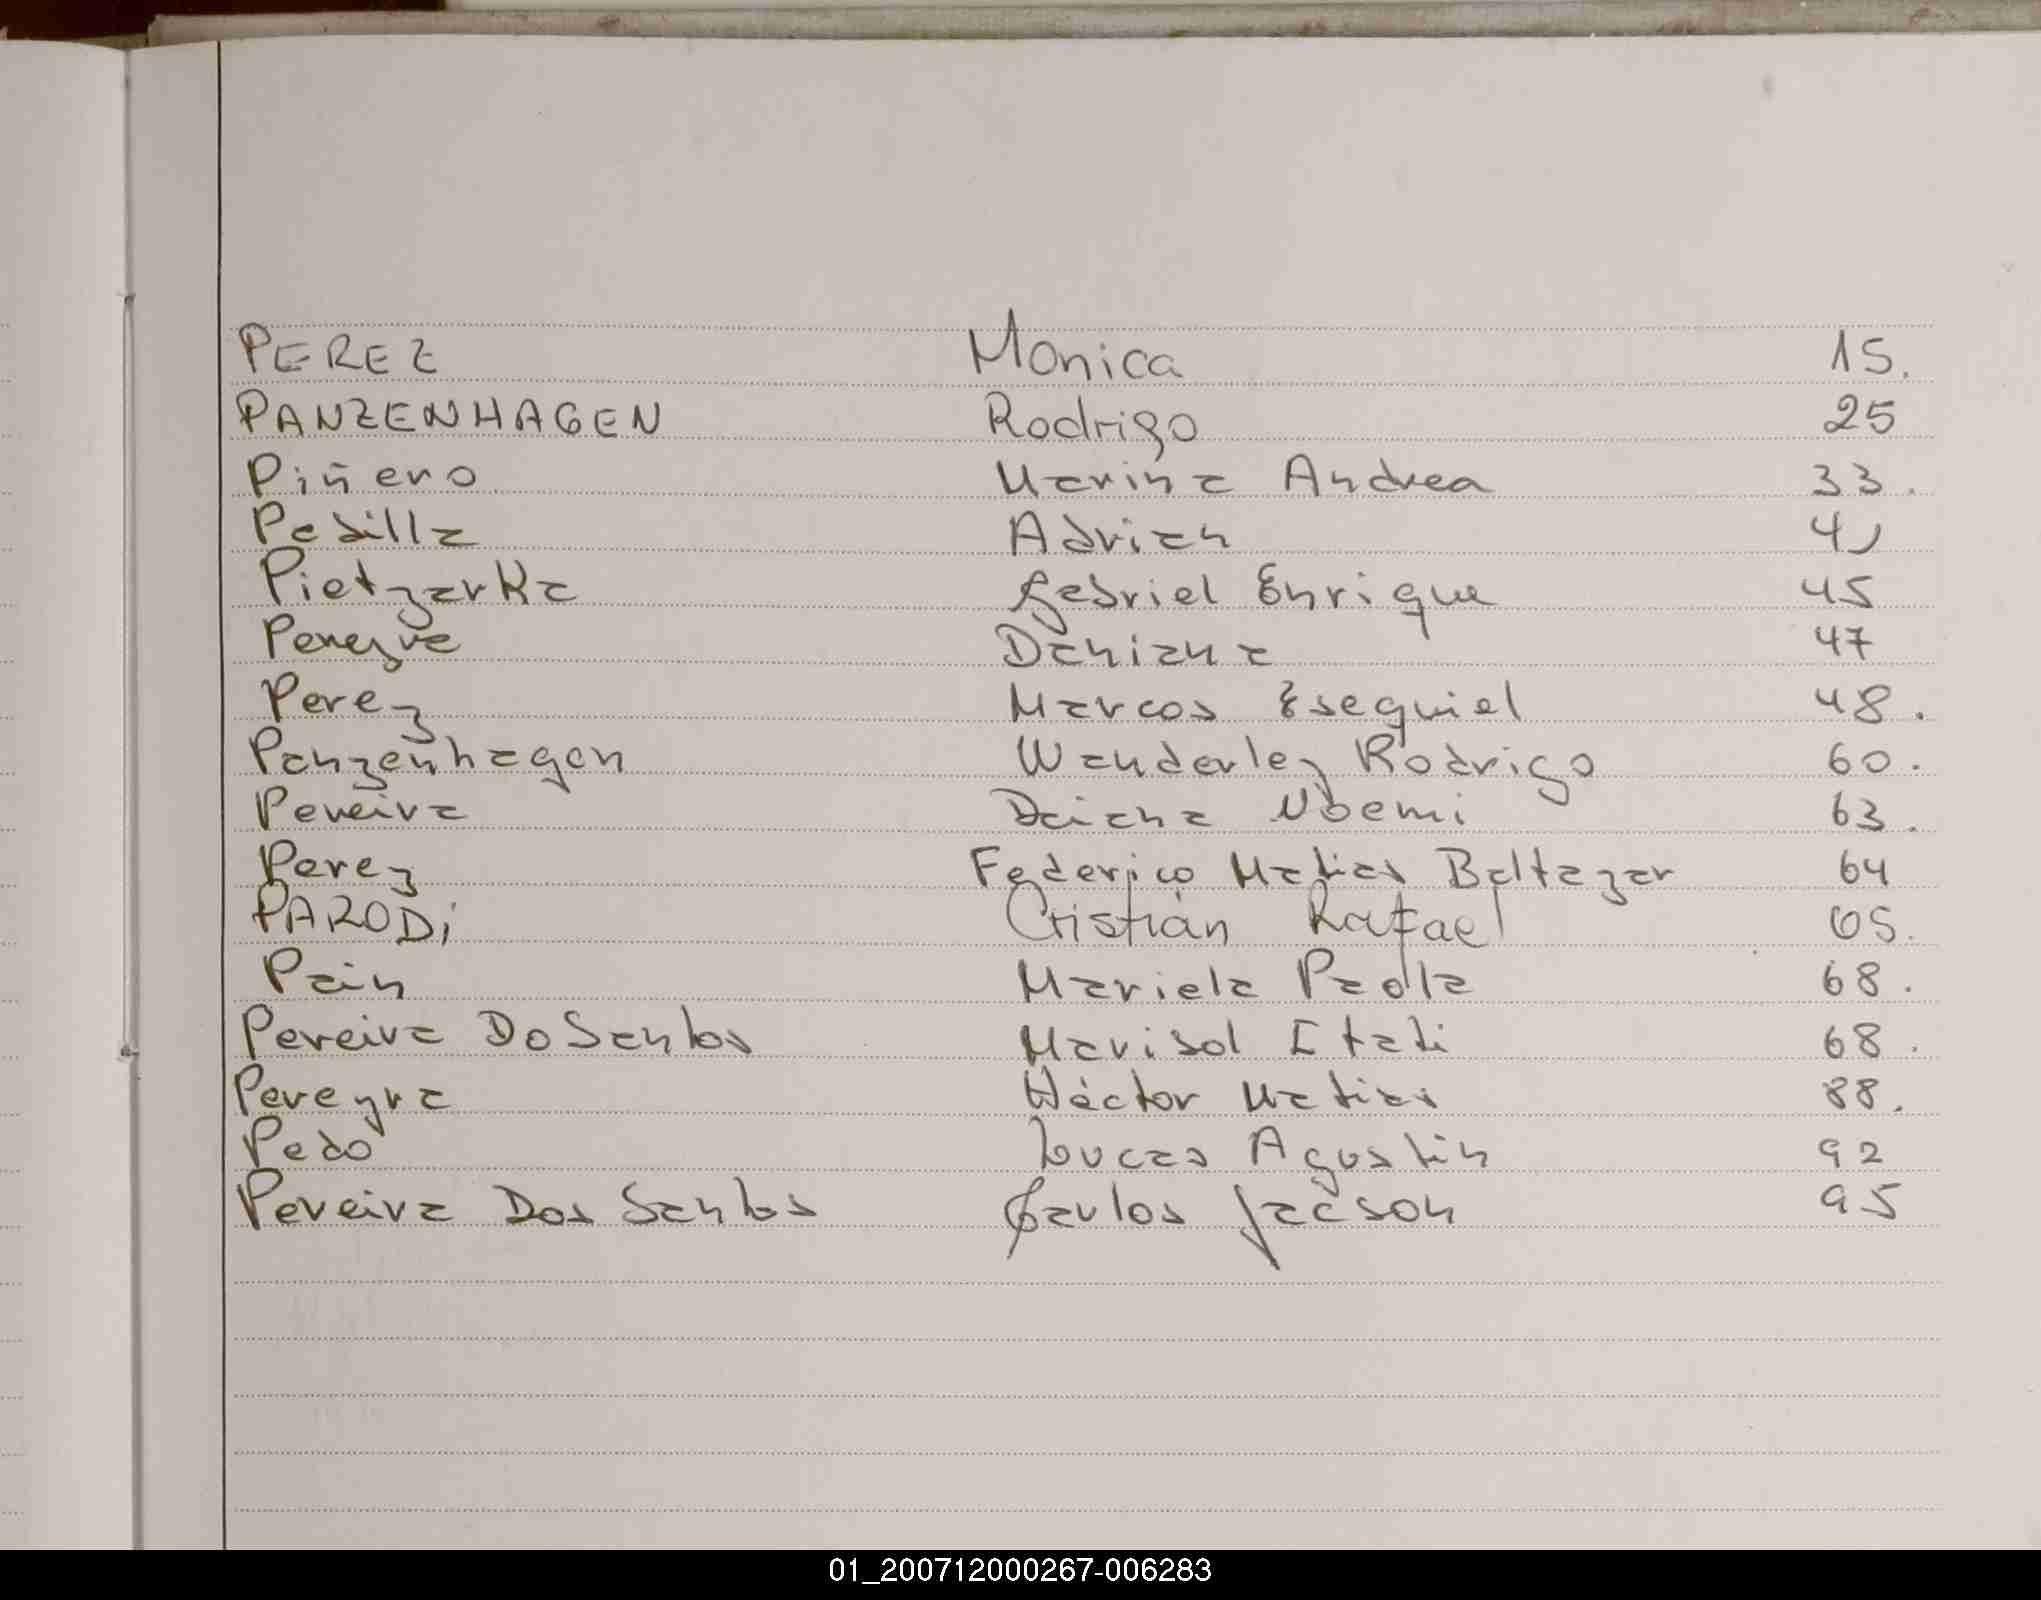 PEREZ Monica 15.
PANZENHAGEN Rodrigo 25
Piñero Marina Andrea 33.
Padilla Adrian 41
Pietzarka Gabriel Enrique 45
Pereyra Daniana 47
Perez Marcos Esequiel 48.
Panzenhagen Wanderley Rodrigo 60.
Pereira Daiana Noemi 63.
Perez Federico Matias Baltazar 64
PARODi Cristián Rafael 65.
Pain Mariela Paola 68.
Pereira Do Santos Marisol Itati 68.
Pereyra Héctor Matias 88.
Pedo Lucas Agustin 92
Pereira Dos Santos Carlos Jacson 95
01_200712000267-006283